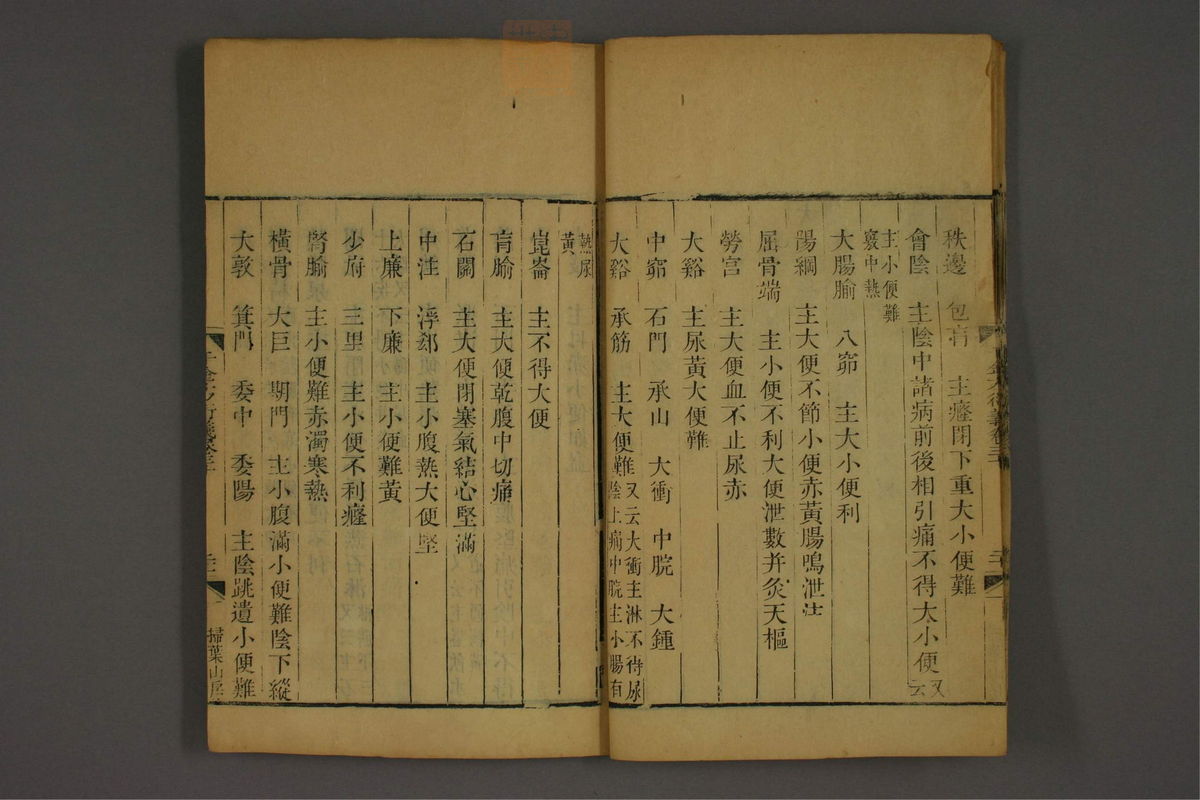 秩邊　包肓　主癃閉下重大小便難
會陰　主陰中諸病前後相引痛不得大小便又云
主小便難
竅中熱
大腸腧　八窌　主大小便利
陽綱　主大便不節小便赤黃腸鳴泄注
屈骨端　主小便不利大便泄數并灸天樞
勞宮　主大便血不止尿赤
大谿　主尿黃大便難
中窌　石門　承山　大衝　中脘　大鍾
大谿　承筋　主大便難又云大衝主淋不得尿陰上痛中脘主小腸有
熱尿
黃
崑崙　主不得大便
肓腧　主大便乾腹中切痛
石關　主大便閉塞氣結心堅滿
中注　浮郄　主小腹熱大便堅
上廉　下廉　主小便難黃
少府　三里　主小便不利癃
腎腧　主小便難赤濁寒熱
橫骨　大巨　期門　主小腹滿小便難陰下縱
大敦　箕門　委中　委陽　主陰跳遺小便難
掃葉山房